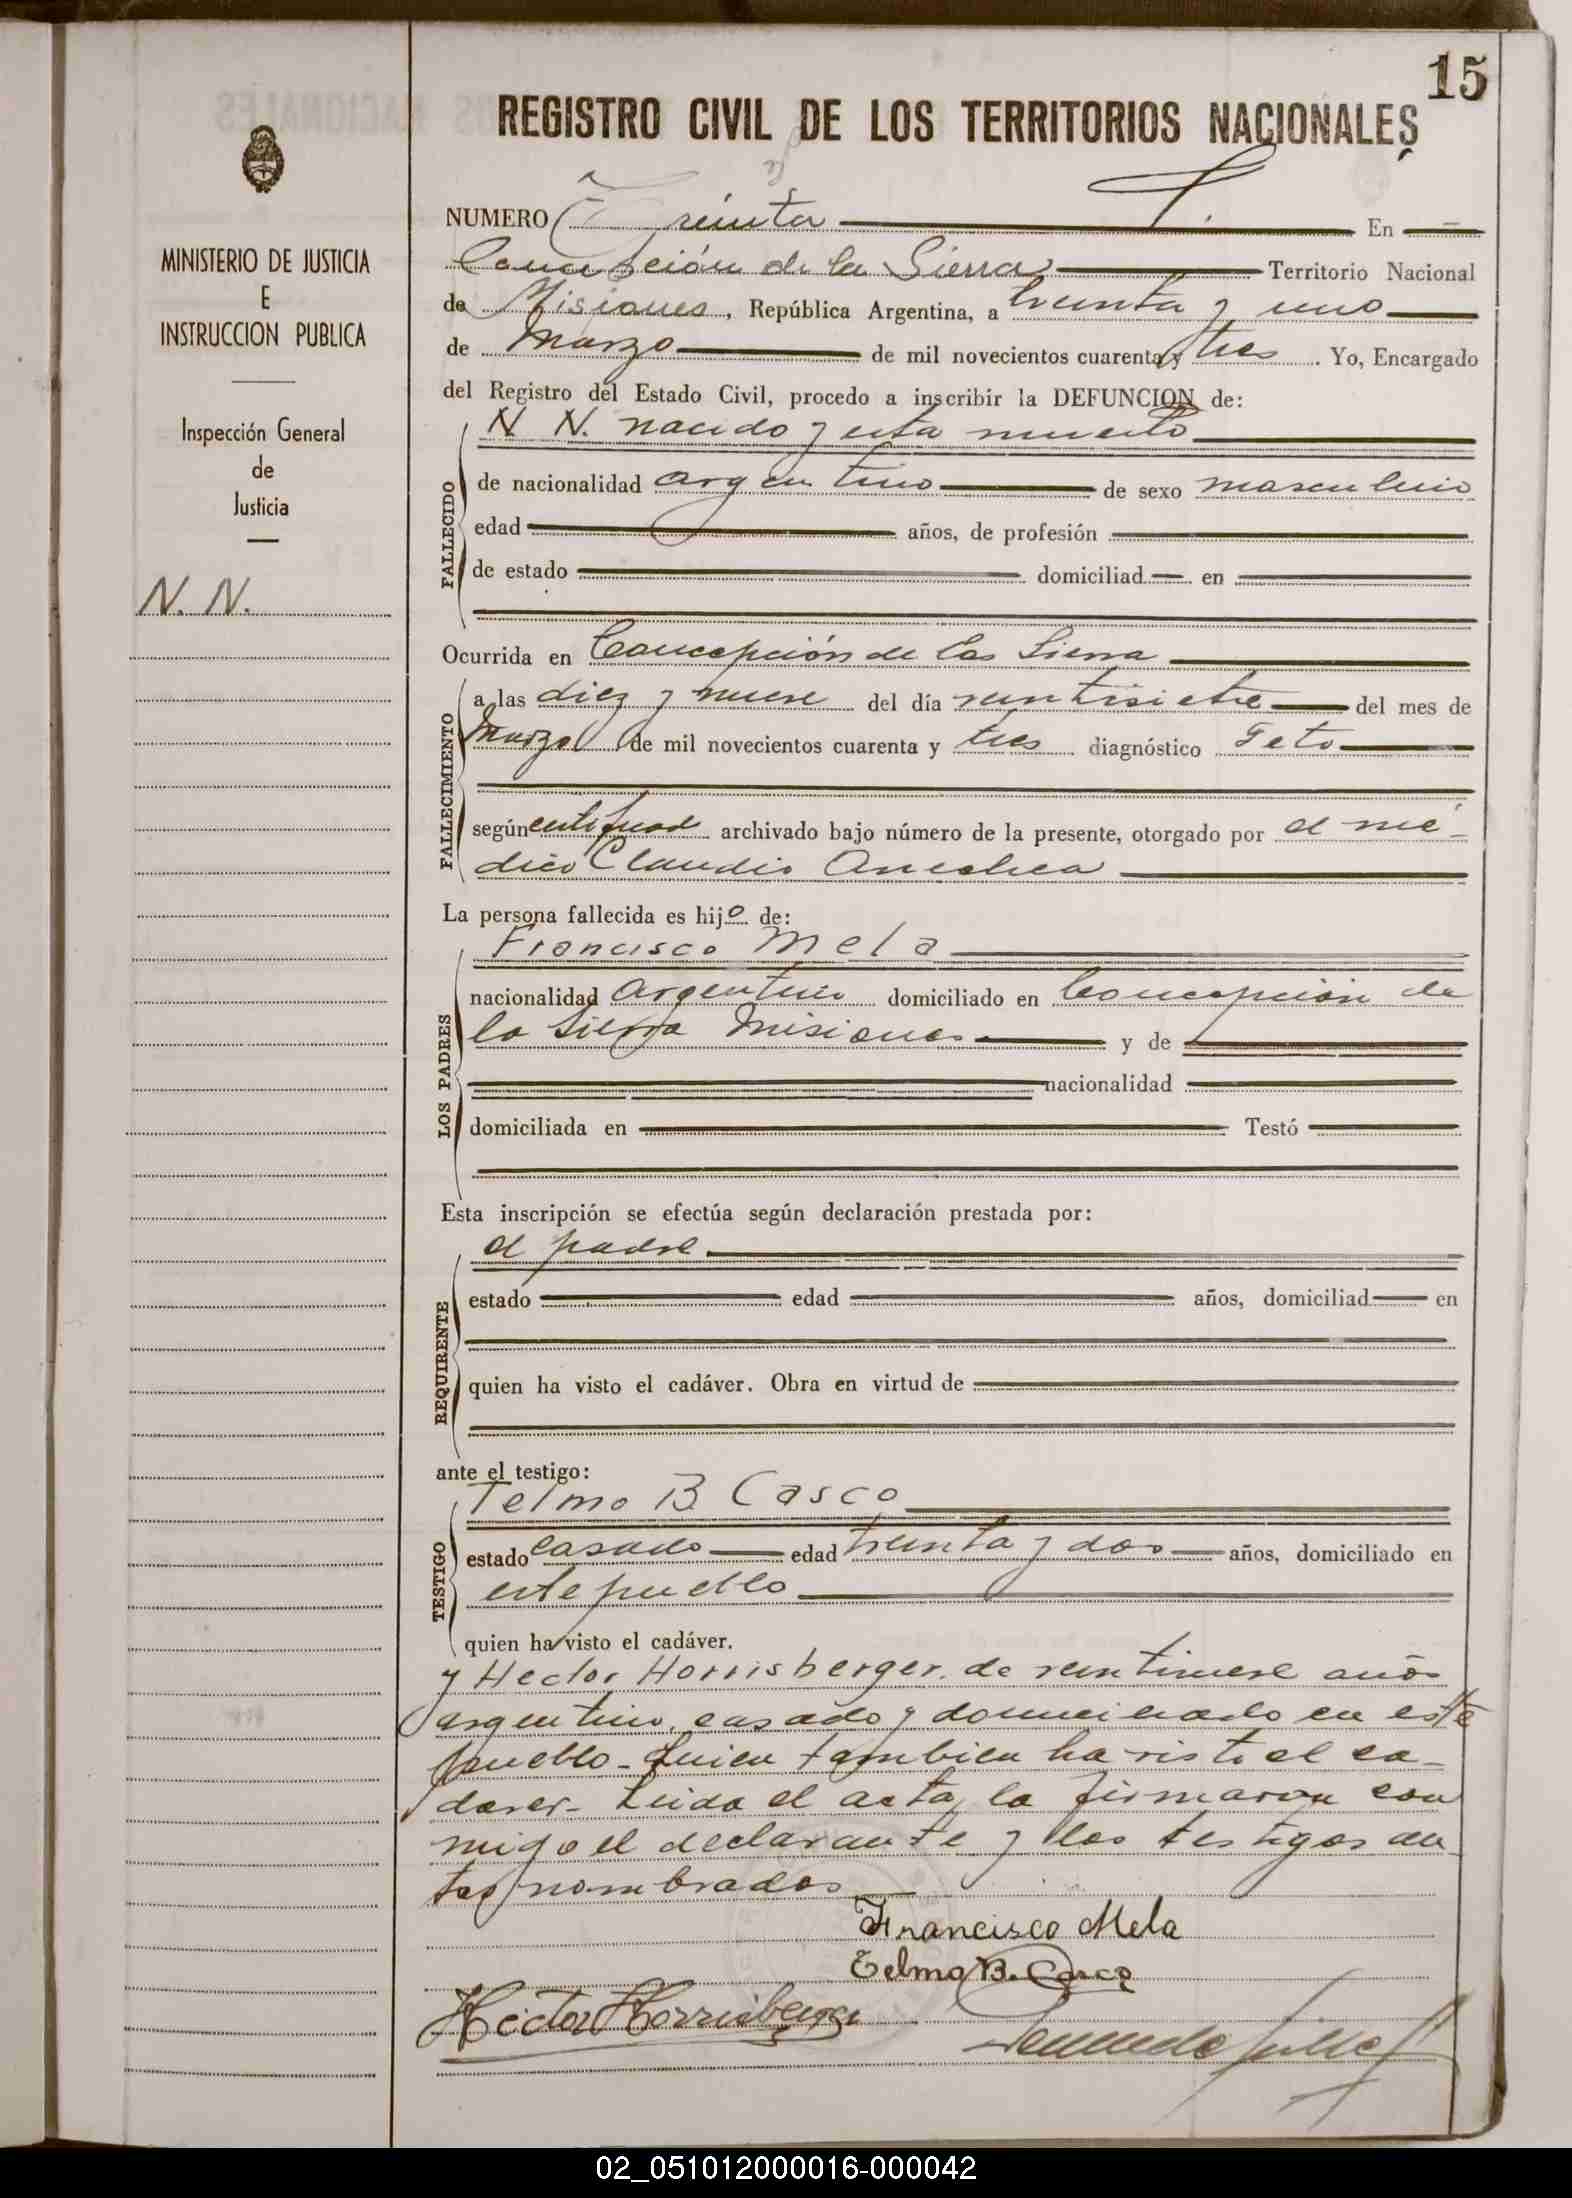 15
REGISTRO CIVIL DE LOS TERRITORIOS NACIONALES
MINISTERIO DE JUSTICIA
E
INSTRUCCION PUBLICA
Inspección General
de
Justicia
N. N.
NUMERO Treinta En
Concepción de la Sierra Territorio Nacional
de Misiones, República Argentina, a treinta y uno
de Marzo de mil novecientos cuarenta y tres. Yo, Encargado
del Registro del Estado Civil, procedo a inscribir la DEFUNCION de:
FALLECIDO
N. N. nacido y esta muerto
de nacionalidad argentino de sexo masculino
edad años, de profesión
de estado domiciliad en
Ocurrida en Concepción de la Sierra
FALLECIMIENTO
a las diez y nueve del día veintisiete del mes de
Marzo de mil novecientos cuarenta y tres diagnóstico Feto
según certificado archivado bajo número de la presente, otorgado por el mé-
dico Claudio
La persona fallecida es hijo de:
LOS PADRES
Francisco Mela
nacionalidad argentino domiciliado en Concepción de
la Sierra Misiones y de
nacionalidad
domiciliada en Testó
Esta inscripción se efectúa según declaración prestada por:
REQUIRENTE
el padre
estado edad años, domiciliad en
quien ha visto el cadáver. Obra en virtud de
ante el testigo:
TESTIGO
Telmo B Casco
estado casado edad treinta y dos años, domiciliado en
este pueblo
quien ha visto el cadáver.
y Hector Horrisberger. de veintinueve años
argentino, casado y domiciliado en este
pueblo - Quien tambien ha visto el ca-
daver - Leida el acta, la firmaron con
migo el declarante y los testigos an
tes nombrados
Francisco Mela
Telmo B. Casco
Hector Horrisberger
02_051012000016-000042